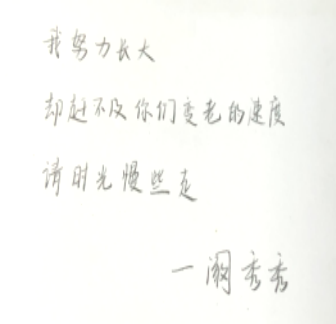 我努力长大
却赶不及你们变老的速度
请时光慢些走
一阙秀秀